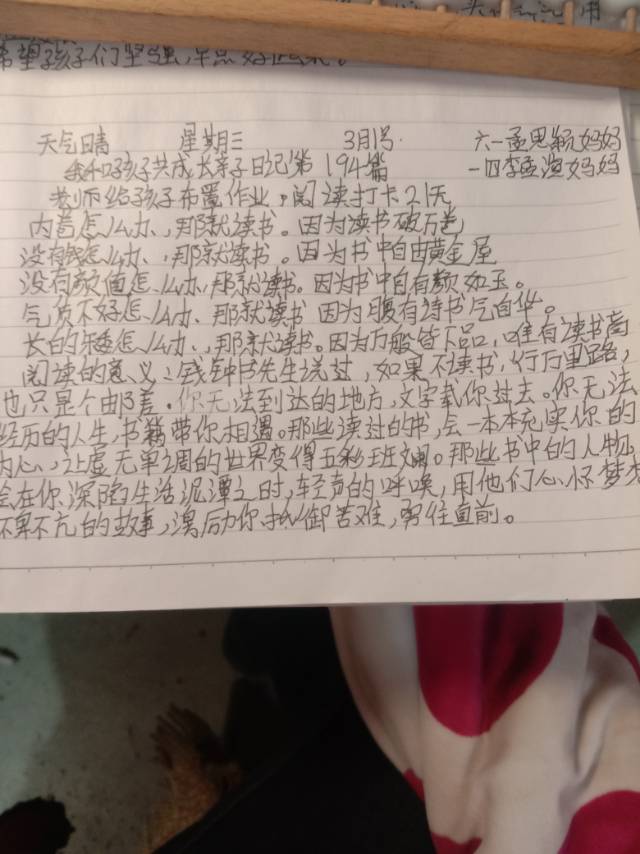 希望孩子们坚强,
天气晴 星期三 3月1号 六一孟思颖妈妈
我和孩子共成长亲子日记第194篇 一四李孟渲妈妈
老师给孩子布置作业,阅读打卡21天
内着怎么办、那就读书。因为读书破万卷
没有钱怎么办、那就读书。因为书中自由黄金屋
没有颜值怎么办、那就读书。因为书中自有颜如玉。
气质不好怎么办、那就读书 因为腹有诗书气自华。
长的矮怎么办、那就读书。因为万般皆下品,唯有读书高
阅读的意义:钱钟书先生说过,如果不读书,行万里路,
也只是个邮差.你无法到达的地方,文字载你过去。你无法
经历的人生,书籍带你相遇。那些读过的书,会一本本充实你的
内心,让虚无单调的世界变得五彩班斓。那些书中的人物,
会在你深陷生活泥潭之时,轻声的呼唤,用他们心怀梦想
不果不亢的故事,激励你抵御苦难,勇往直前。